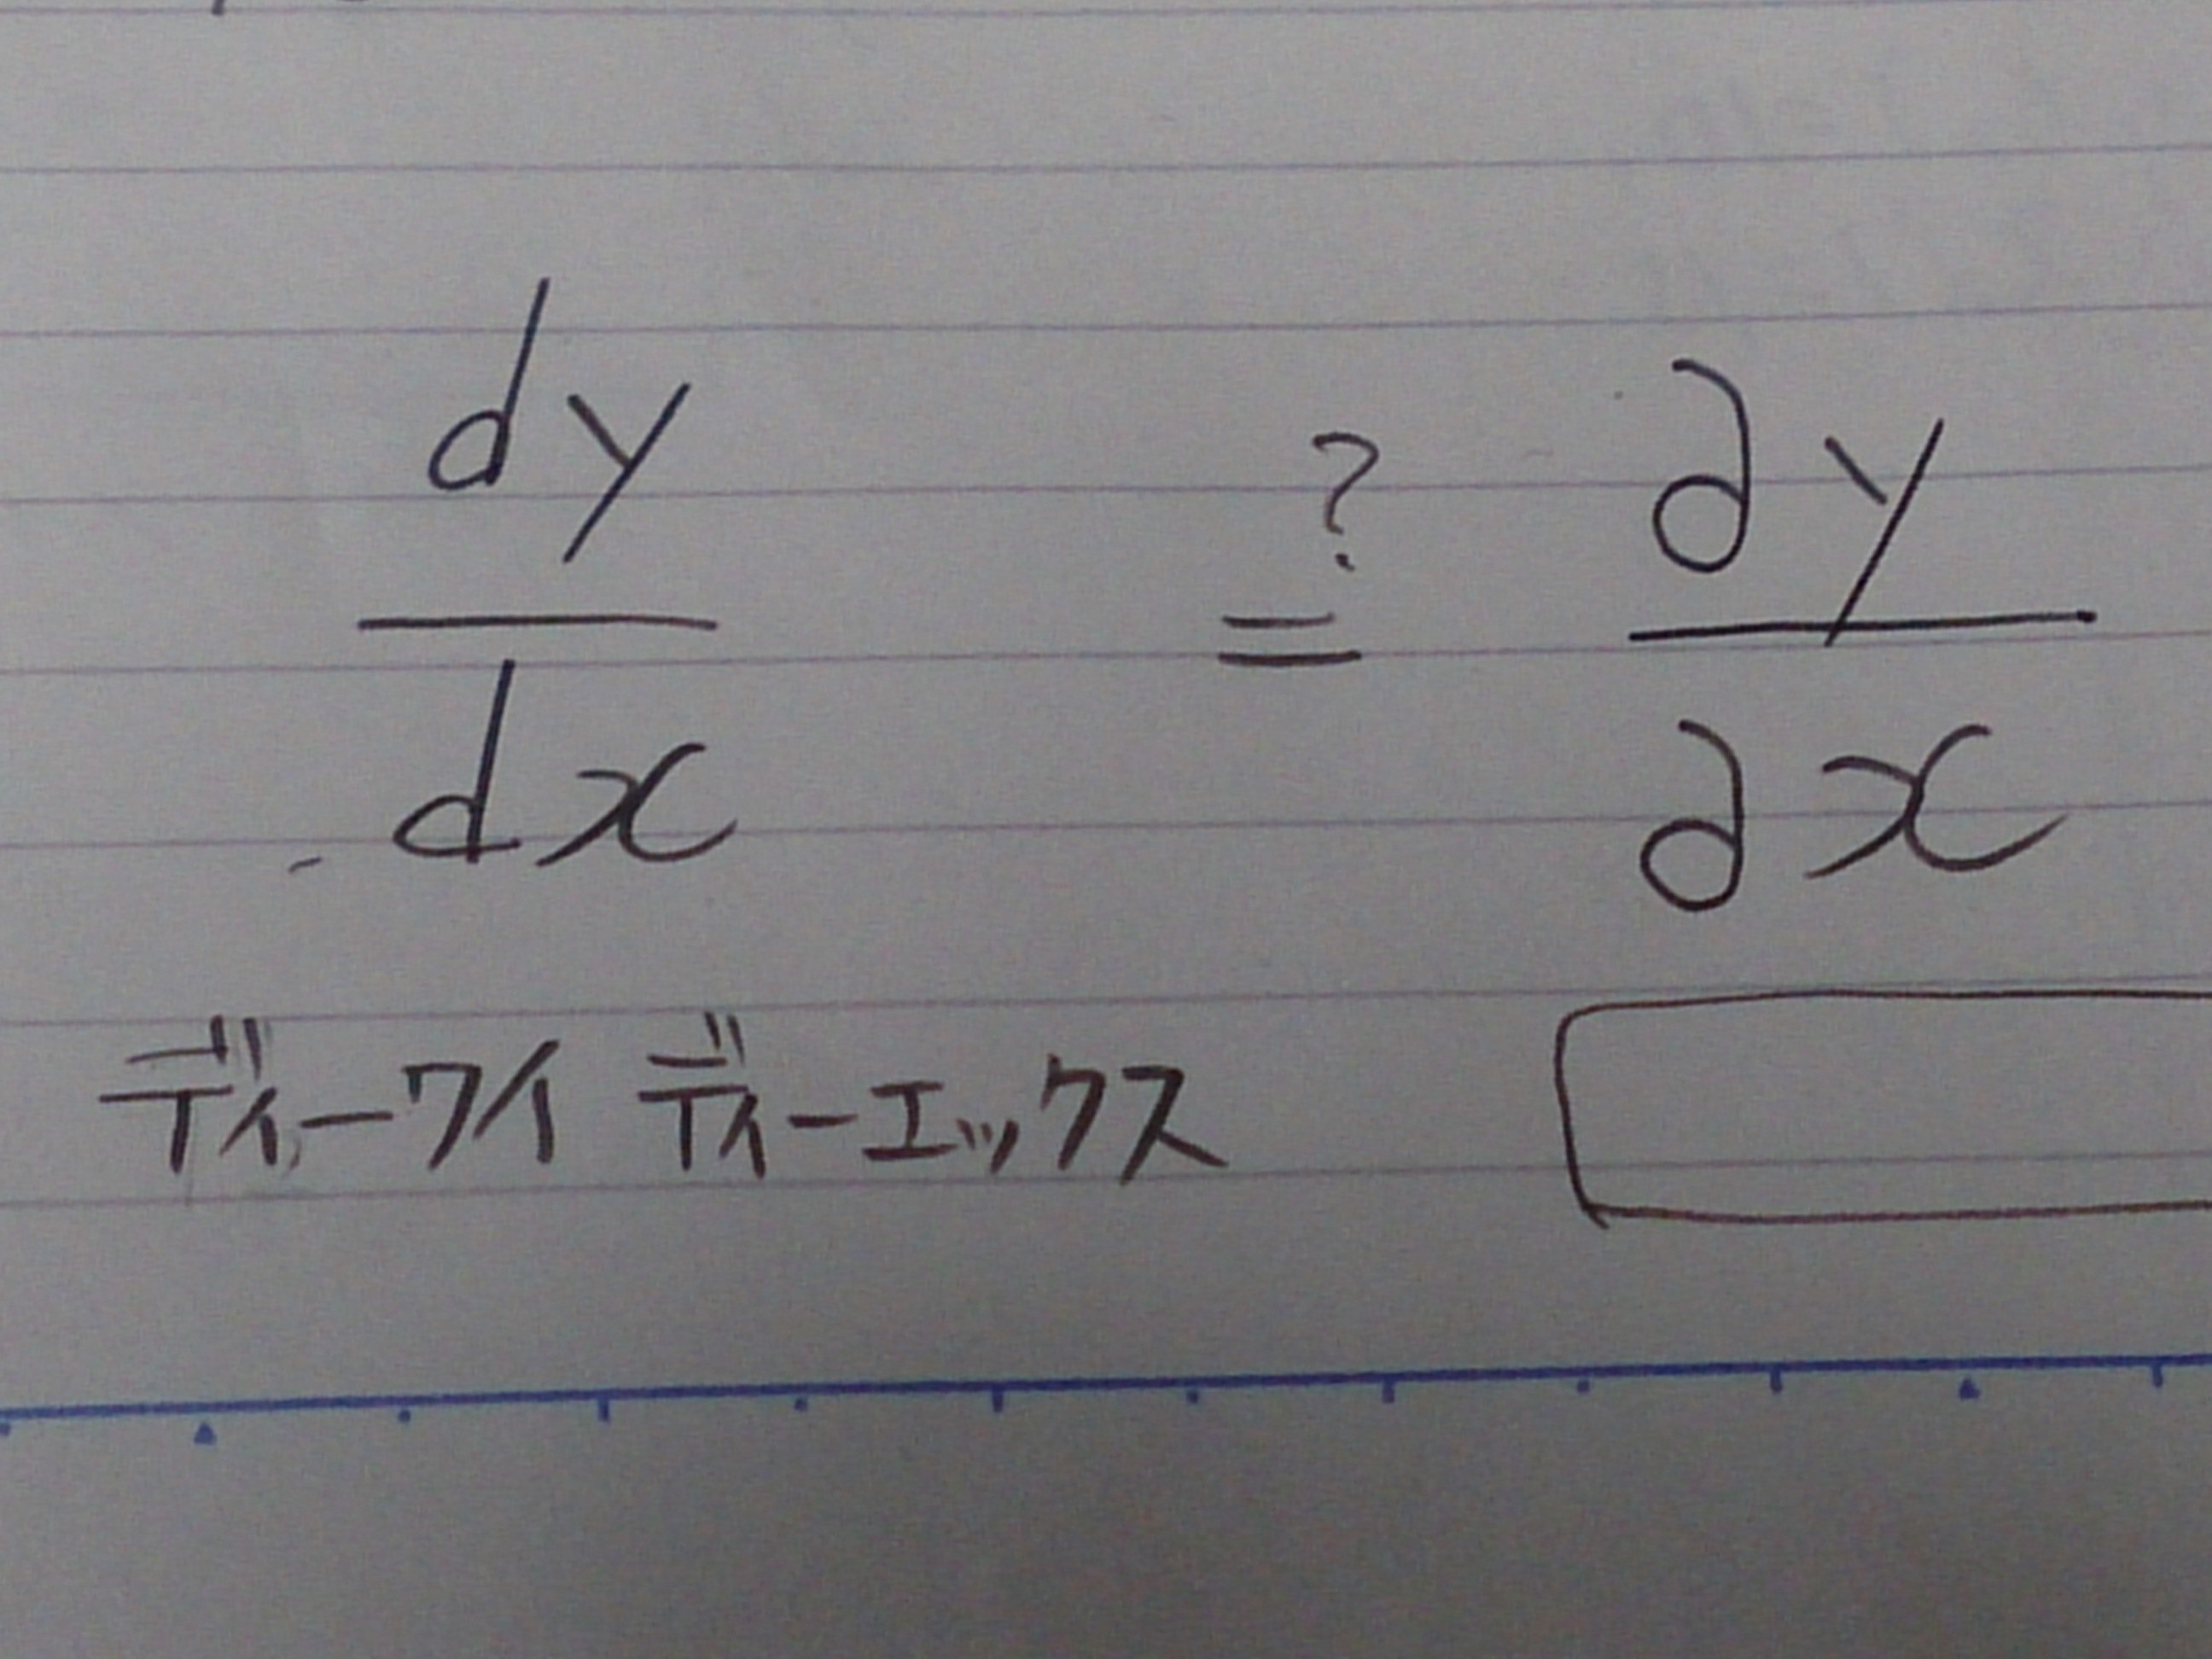 dy/dx =? ∂y/∂x
ディーワイ ディーエックス